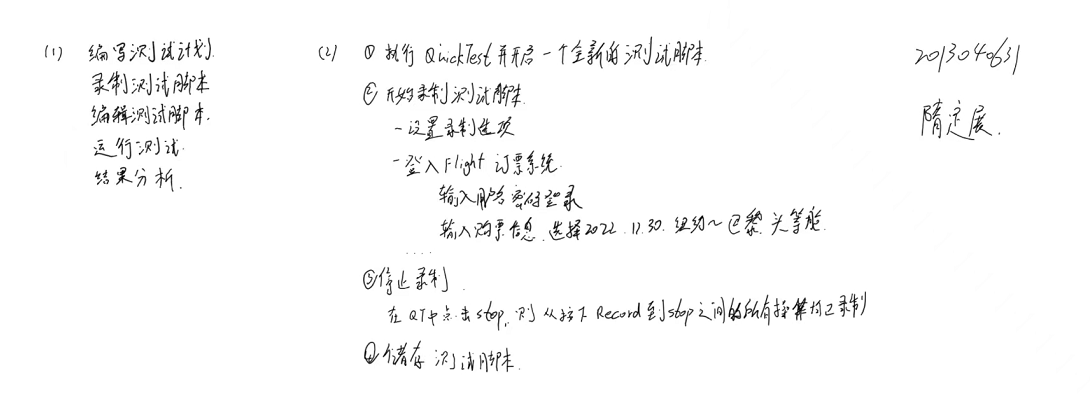 (1) 编写测试计划.
录制测试脚本
编辑测试脚本.
运行测试.
结果分析.
(2) ① 执行 QuickTest 并开启一个全新的测试脚本.
② 开始录制测试脚本.
- 设置录制选项
- 登入 Flight 订票系统.
输入用户名 密码登录
输入购票信息. 选择2022.11.30. 纽约~巴黎. 头等舱.
....
③ 停止录制.
在QT中点击stop, 则从按下Record到stop之间的所有操作均已录制
④ 储存测试脚本.
2013040631
隋定展.